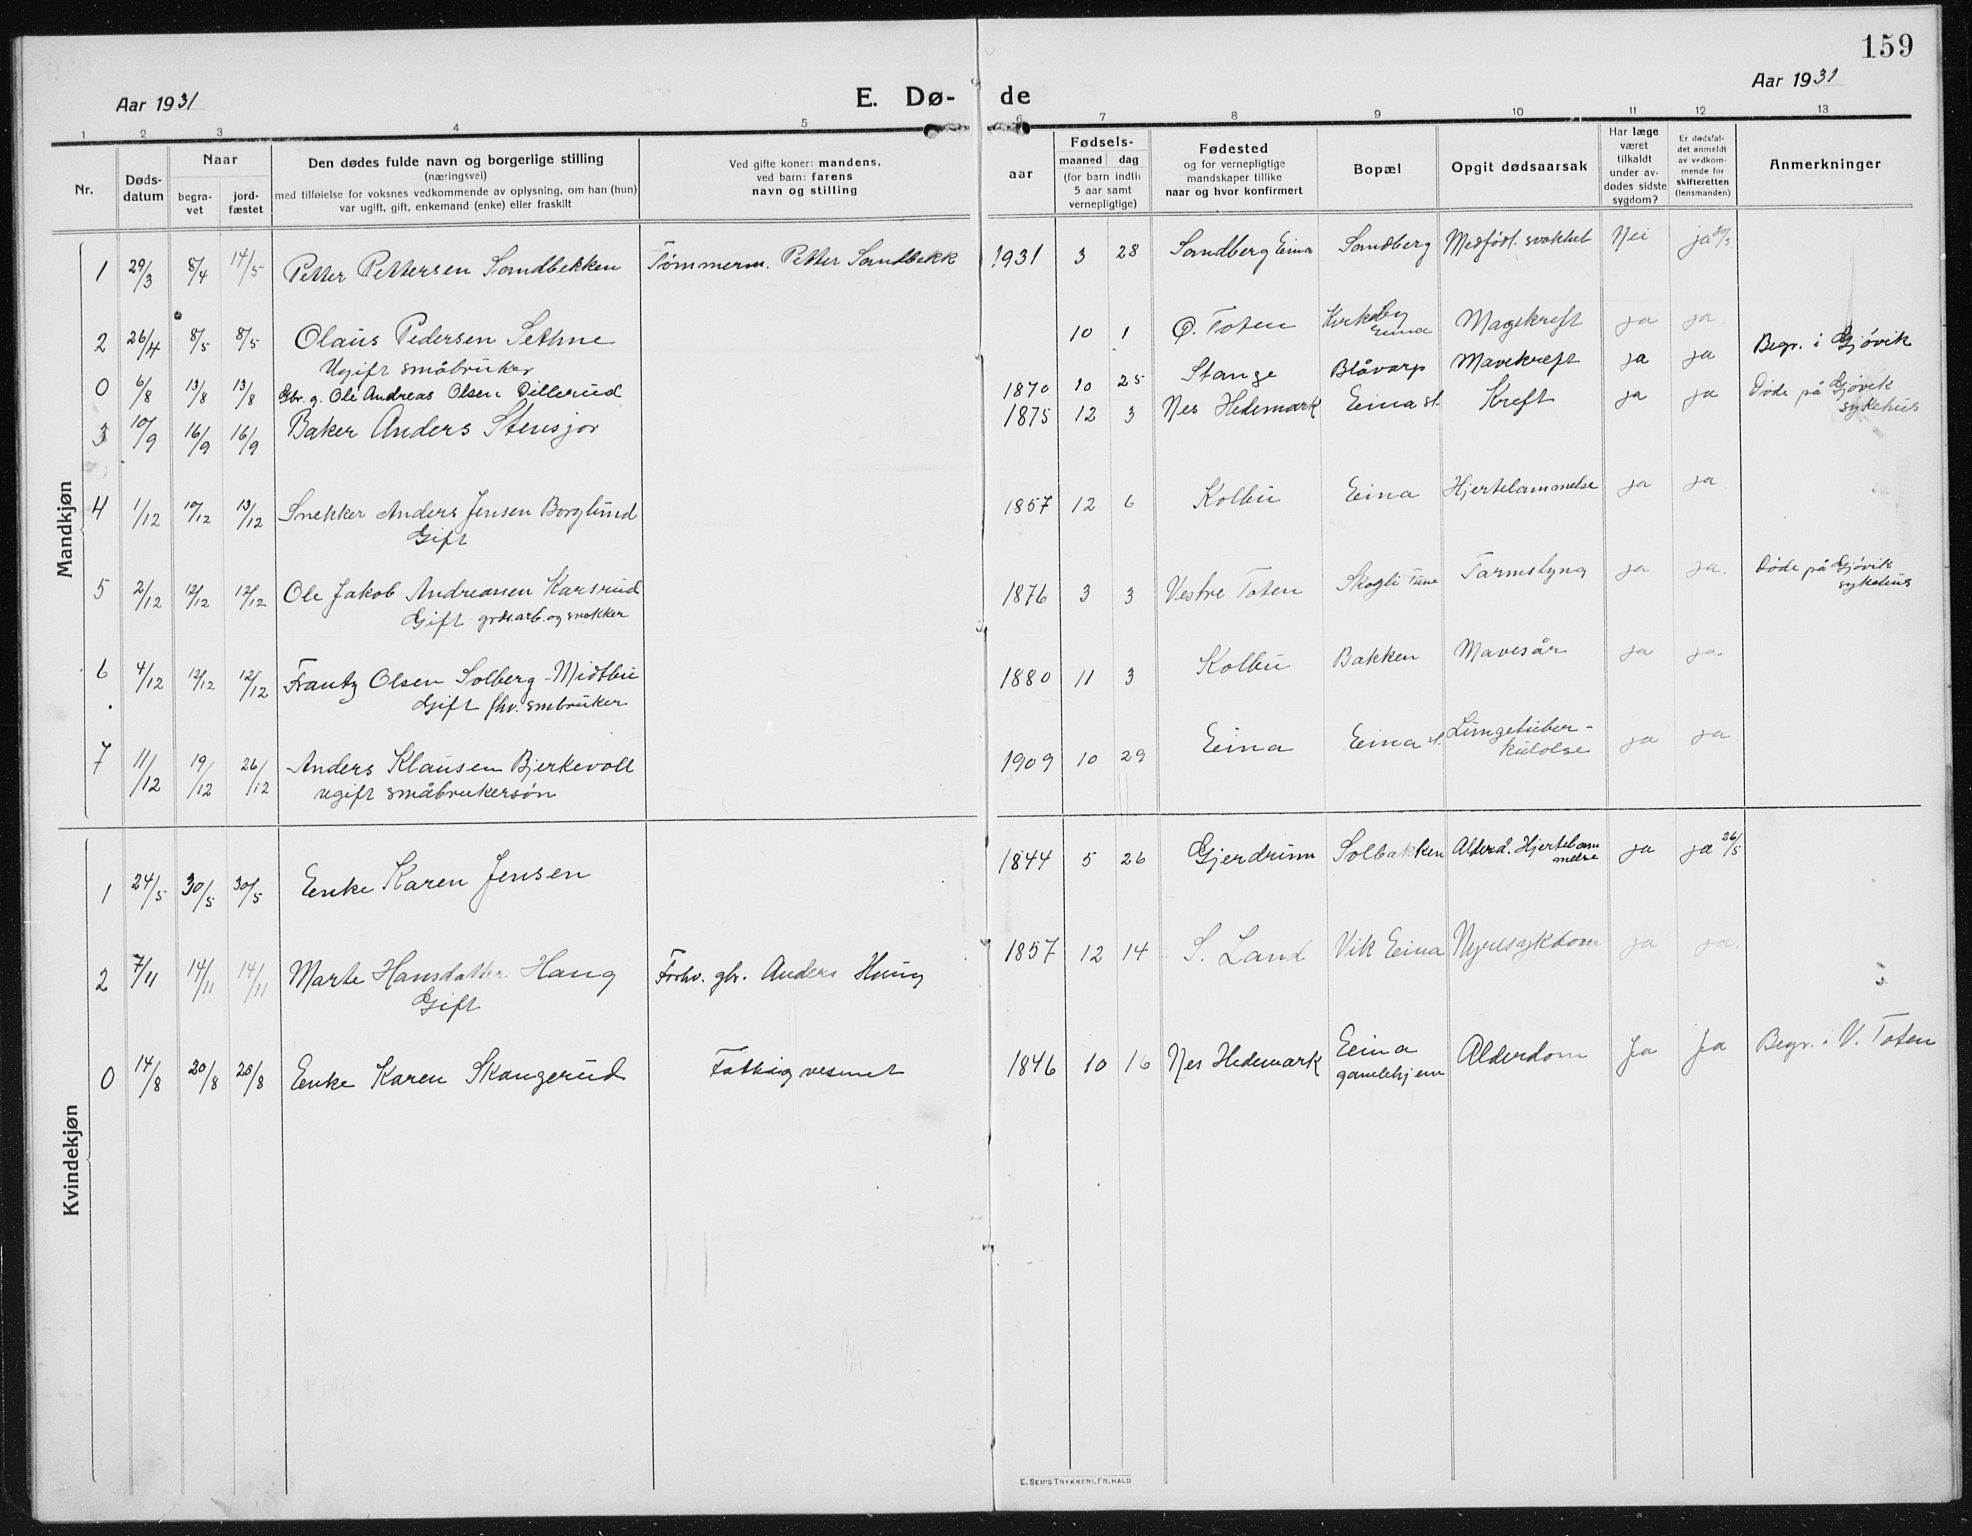 159
Aar 1931
E. Dø- de
Aar 1931
1 2 3 4 5 6 7 8 9 10 11 12 13
Nr.
Døds-
datum
Naar
begra-
vet
jord-
fæstet
Den dødes fulde navn og borgerlige stilling
(næringsvei)
med tilføielse for voksnes vedkommende av oplysning, om han (hun)
var ugift, gift, enkemand (enke) eller fraskilt
Ved gifte koner: mandens,
ved barn: farens
navn og stilling
aar
Fødsels-
maaned dag
(for barn indtil
5 aar samt
vernepligtige)
Fødested
og for vernepligtige
mandskaper tillike
naar og hvor konfirmert
Bopæl
Opgit dødsaarsak
Har læge
været
tilkaldt
under av-
dødes sidste
sygdom?
Er dødsfal-
det anmeldt
av vedkom-
mende for
skifteretten
(lensmanden)
Anmerkninger
Mandkjøn
1 29/3 8/4 14/5 Petter Pettersen Sandbekken Tømmerm. Petter Sandbekk 1931 3 28 Sandberg Eina Sandberg Medfødt svakhet Nei ja
2 26/4 8/5 8/5 Olaus Pedersen Sethne 10 1 Ø. Toten Kirkeby Eina Magekreft ja ja
Ugift småbruker
0 6/8 13/8 13/8 Gbr. g. Ole Andreas Olsen Dillerud 1870 10 25 Stange Blåvarp Mavekreft ja ja Begr. i Gjøvik
3 10/9 16/9 16/9 Baker Anders Stensjor 1875 12 3 Nes Hedemark Eina st. Kreft ja ja Døde på Gjøvik
sykehus
4 1/12 10/12 13/12 Snekker Anders Jensen Borglund 1857 12 6 Kolbu Eina Hjertelammelse ja ja
Gift
5 2/12 12/12 12/12 Ole Jakob Andreassen Karsrud 1876 3 3 Vestre Toten Skogli Tarmslyng ja ja Døde på Gjøvik
Gift grds.arb. og snekker sykehus
6 4/12 12/12 12/12 Frantz Olsen Solberg-Midtbu 1880 11 3 Kolbu Bakken Mavesår ja ja
Gift fhv. smbruker
7 11/12 19/12 26/12 Anders Klausen Bjerkevoll 1909 10 29 Eina Eina st. Lungetuber-
ugift småbrukersøn kulolse ja ja
Kvindekjøn
1 24/5 30/5 30/5 Enke Karen Jensen 1844 5 26 Gjerdrum Solbakken Alderd. Hjertelam
melse ja ja 26/5
2 7/11 14/11 14/11 Marte Hansdatter Haug Forhv. gbr. Anders Haug 1857 12 14 S. Land Vik Eina Nyresykdom ja ja
Gift
0 14/8 20/8 20/8 Enke Karen Skangerud Fattigvesenet 1846 10 16 Nes Hedemark Eina
gamlehjem Alderdom Ja Ja Begr. i V. Toten
E. SEM'S TRYKKERI, FR.HALD